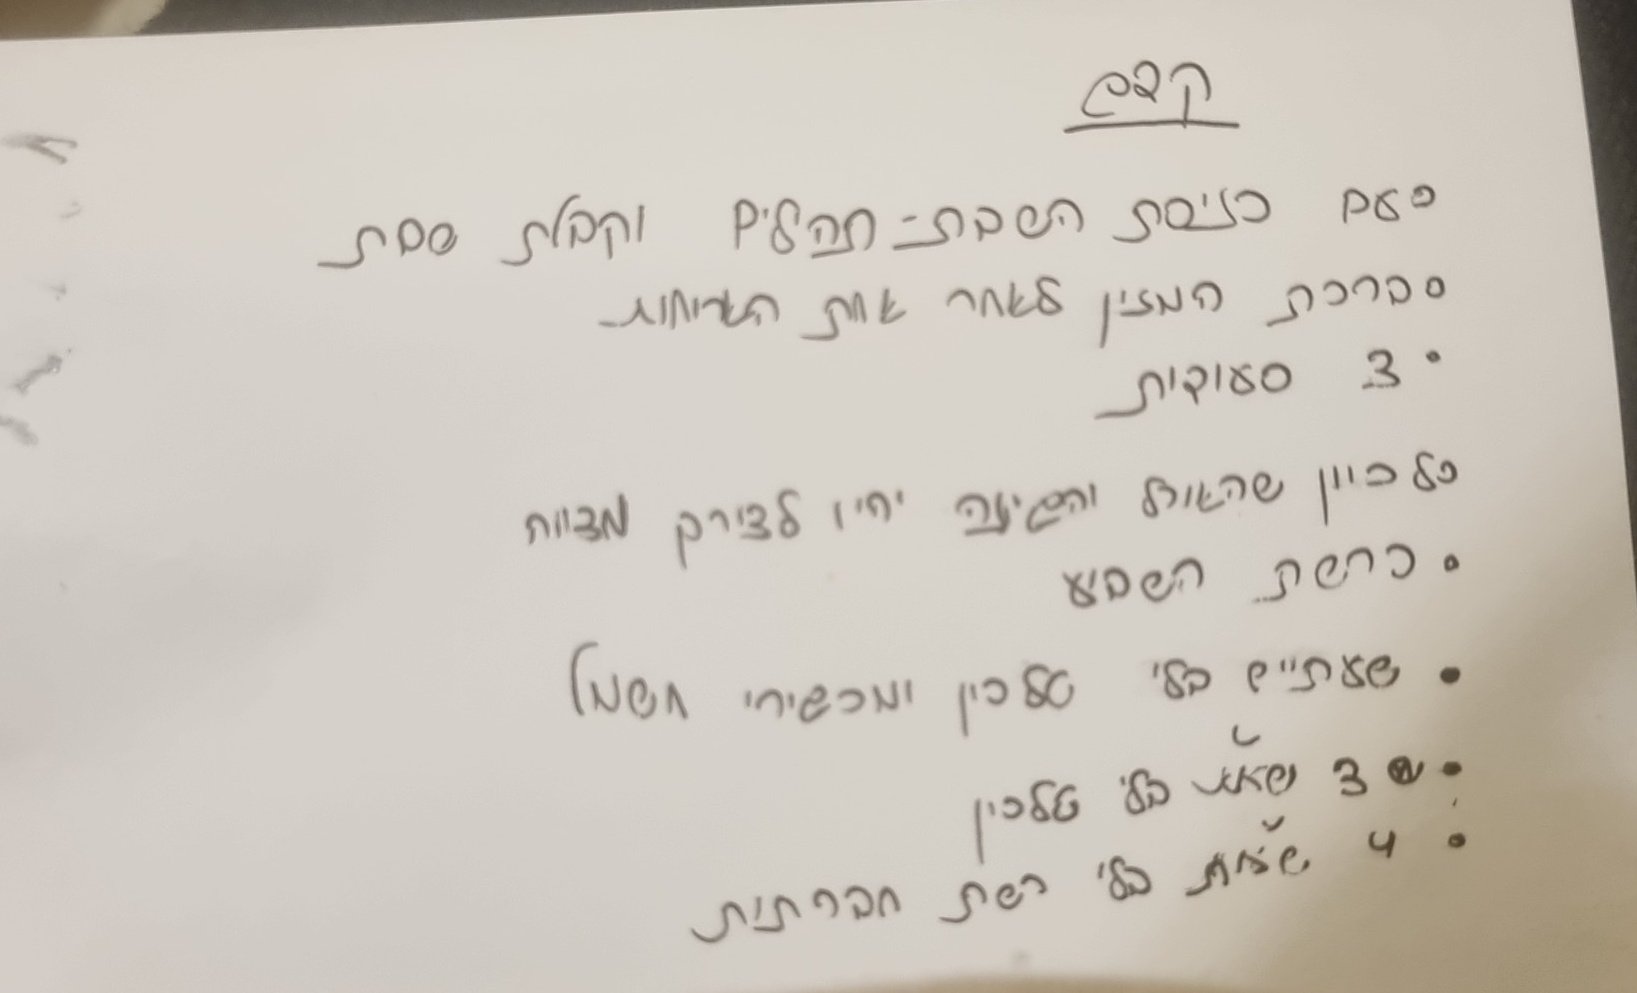 עם כניסת השבת - תהלים וקבלת שבת
ברכת המזון לאחר אחת הארוחות
• 3 סעודות
כל כיוון שהאוכל והשינה יהיו לצורך מצוות
• פרשת השבוע
• שעתיים בלי טלפון ומכשירי חשמל
• 3 שעות בלי טלפון
• 4 שעות בלי רשת חברתית